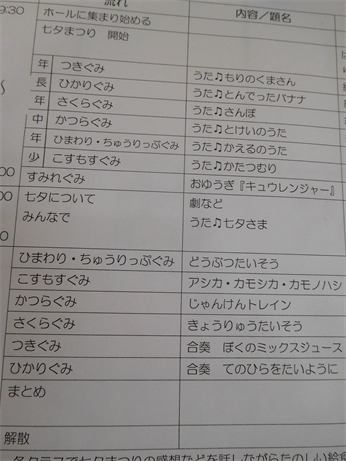 流れ 内容／題名
9:30 ホールに集まり始める
七夕まつり 開始
年 つきぐみ うた♫もりのくまさん
長 ひかりぐみ うた♫とんでったバナナ
年 さくらぐみ うた♫さんぽ
中 かつらぐみ うた♫とけいのうた
年 ひまわり・ちゅうりっぷぐみ うた♫かえるのうた
少 こすもすぐみ うた♫かたつむり
00 すみれぐみ おゆうぎ『キュウレンジャー』
00 七夕について 劇など
みんなで うた♫七夕さま
ひまわり・ちゅうりっぷぐみ どうぶつたいそう
こすもすぐみ アシカ・カモシカ・カモノハシ
かつらぐみ じゃんけんトレイン
さくらぐみ きょうりゅうたいそう
つきぐみ 合奏 ぼくのミックスジュース
ひかりぐみ 合奏 てのひらをたいように
まとめ
解散
各クラスで七夕まつりの感想などを話しながらたのしい給食